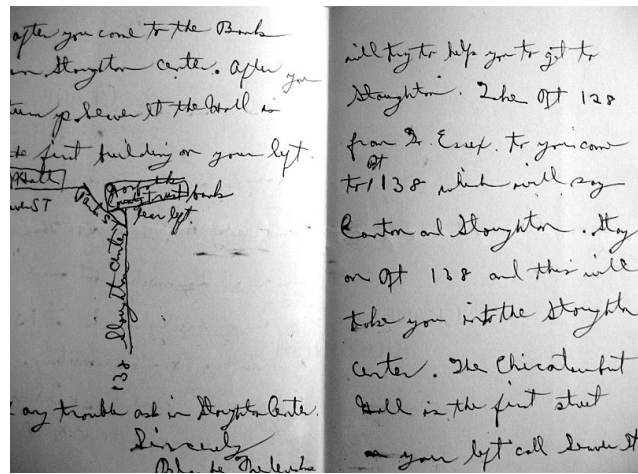 after you come to the Bank
in Stoughton center. After you
turn up Seaver St the Hall is
first building on your left.
Hall
Norfolk
County trust bank
Park St
ver ST
Tear left
Stoughton Center
138
any trouble ask in Stoughton Center.
Sincerely
will try to help you to get to
Stoughton. The Rt 128
from Essex. to you come
Rt
to 138 which will say
Canton and Stoughton. Stay
on Rt 138 and this will
take you into the Stoughton
Center. The Chicataubut
Hall is the first street
your left call Seaver St